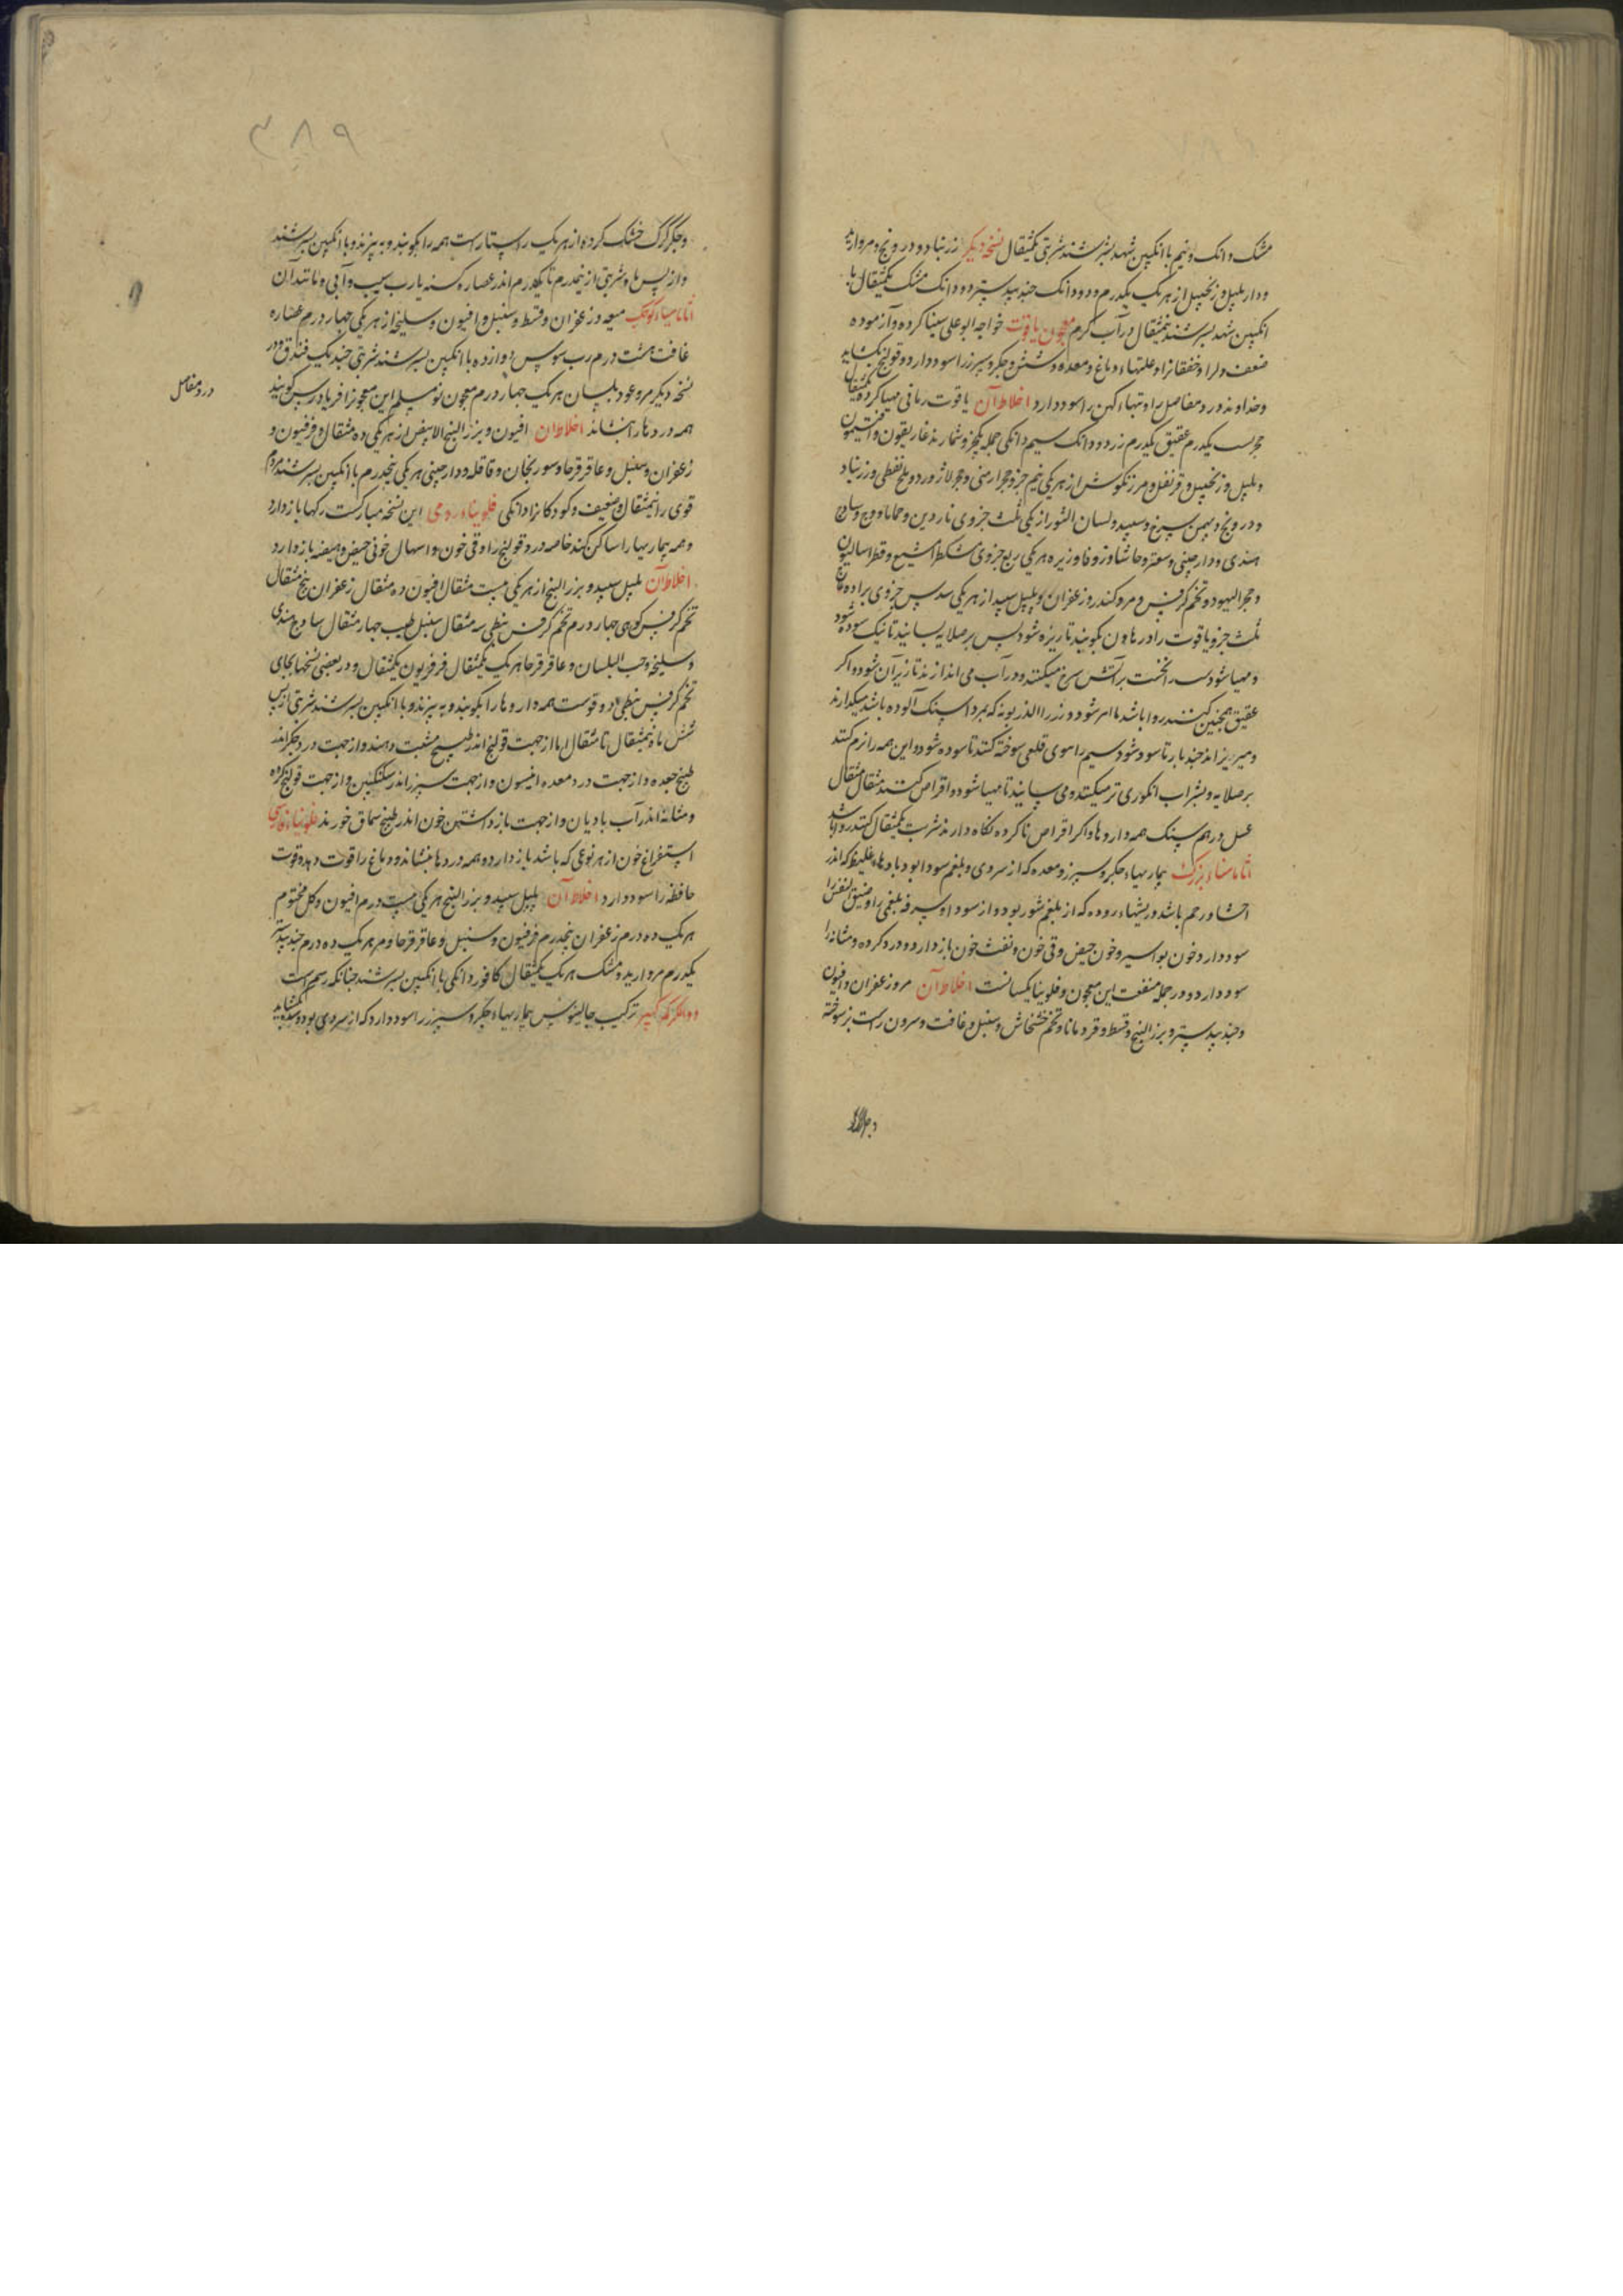 مشک دانک ونیم با انکبین شهد بسرشند شربتی یکمثقال نسخه دیکر زرنباد و درونج و مروارید
و دارپلپل و زنجبیل از هر یک یکدرم و دودانک جندبیدستر دودانک مشک یکمثقال با
انکبین شهد بسرشند نیمثقال در آب کرم معجون یاقوت خواجه ابوعلی سینا کرده و آزموده
ضعف دل را و خفقانرا و علتهاء دماغ و معده و شش و جکر و سپرز را سود دارد و قولنج بکشاید
و خداوند درد مفاصل را و تبهاء کهن را سود دارد اخلاط آن یاقوت رمانی مهیا کرده یکمثقال
عقیق یکدرم زر دودانک سیم دانکی جمله یکجزو شمارند غاریقون و افتیمون
و پلپل و زنجبیل و قرنفل و مرزنکوش از هر یکی نیم جزو حجر ارمنی و حجر لاژورد و ملح نفطی و زرنباد
و درونج و بهمن سرخ و سپید و لسان الثور از یکی ثلث جزوی ناردین و حماما و وج و ساذج
هندی و دارچینی و سعتر و حاشا و زوفا و زیره هریکی ربع جزوی مشکطرامشیع و فطراسالیون
و حجر الیهود و تخم کرفس و مر و کندر و زعفران و پلپل سپید از هر یکی سدس جزوی براده عاج
ثلث جزو یاقوت را در هاون بکوبند تا ریزه شود پس بر صلایه بسایند تا نیک سوده شود
و مهیا شود بر آتش سرخ میکنند و در آب می اندازند تا زیزان شود و اکر
عقیق همچنین کنند روا باشد تا مر شود و زر را اندر بوته که بمرداسنک آلوده باشد میکدازند
و میریزاند چندبار تا سوده شود سیم را سوی قلعی سوخته کنند تا سوده شود و این همه را نرم کنند
بر صلایه و بشراب انکوری تر میکنند و می سایند تا مهیا شود و اقراص کنند مثقال مثقال
عسل در هم سنک همه داروها و اکر اقراص ناکرده نکاه دارند شربت یکمثقال کنند روا باشد
اثاناسیاء بزرک بیماریهاء جکر و سپرز و معده که از سردی و بلغم سودا بود بادهاء غلیظ که اندر
احشا و رحم باشد و ریشهاء روده که از بلغم شور بود و از سودا و سرفه بلغمی را و ضیق النفس را
سود دارد و خون بواسیر و خون حیض و قی خون و نفث خون باز دارد و درد کرده و مثانه را
سود دارد و در جمله منفعت این معجون و فلونیا یکسانست اخلاط آن مر و زعفران و افیون
و جندبیدستر و بزرالبنج و قسط و قردمانا و تخم خشخاش و سنبل و غافت و سرون راست بز سوخته
و جکر
۳۸۹
و جکر کرک خشک کرده از هر یک راستاراست همه را بکوبند و به بیزند و با انکبین بسرشند
و از پس ماه شربتی از نیمدرم تا یکدرم اندر عصاره کسنه یا رب سیب و آبی و مانند آن
اثاناسیاء کوچک میعه و زعفران و قسط و سنبل و افیون و سلیخه از هر یکی چهار درم عصاره
غافت هشت درم رب سوس دوازده با انکبین بسرشند شربتی چند یک فندق و در
نسخه دیکر مر و عود بلسان هر یک چهار درم معجون نومسلم این معجونرا فریادرس کویند
همه دردها را بنشاند اخلاط آن افیون و بزرالبنج الابیض از هر یکی ده مثقال و فرفیون و
زعفران و سنبل و عاقرقرحا و سورنجان و قاقله و دارچینی هر یکی پنجدرم با انکبین بسرشند مردم
قوی را نیمثقال و ضعیف و کودکانرا دانکی فلونیاء رومی این نسخه مبارکست رکها باز دارد
و همه بیماریها را ساکن کند خاصه درد قولنج را و قی خون و اسهال خونی حیض و هیضه باز دارد
اخلاط آن پلپل سپید و بزرالبنج از هر یکی بیست مثقال افیون ده مثقال زعفران پنج مثقال
تخم کرفس کوهی چهار درم تخم کرفس نبطی سه مثقال سنبل طیب چهار مثقال ساذج هندی
و سلیخه و حب البلسان و عاقرقرحا هر یک یکمثقال فرفریون یکمثقال و در بعضی نسخها بجای
تخم کرفس نبطی دوقوست همه داروها را بکوبند و به بیزند و با انکبین بسرشند شربتی از پس
شش ماه نیمثقال تا مثقال اما از جهت قولنج اندر طبیخ شبت دهند و از جهت درد جکر اندر
طبیخ جعده و از جهت درد معده انیسون و از جهت سپرز اندر سکنکبین و از جهت قولنج کرده
و مثانه اندر آب بادیان و از جهت بازداشتن خون اندر طبیخ سماق خورند فلونیاء فارسی
استفراغ خون از هر نوعی که باشد باز دارد و همه دردها بنشاند و دماغ را قوت دهد و قوت
حافظه را سود دارد اخلاط آن پلپل سپید و بزرالبنج هر یکی بیست درم افیون و کل مختوم
هر یک ده درم زعفران پنجدرم فرفیون و سنبل و عاقرقرحا و مر هر یک ده درم جندبیدستر
یکدرم مروارید و مشک هر یک یکمثقال کافور دانکی با انکبین بسرشند چنانکه رسم است
دواء الکرکم کبیر ترکیب جالینوس بیماریهاء جکر و سپرز را سود دارد که از سردی بود و سده بکشاید
درد مفاصل